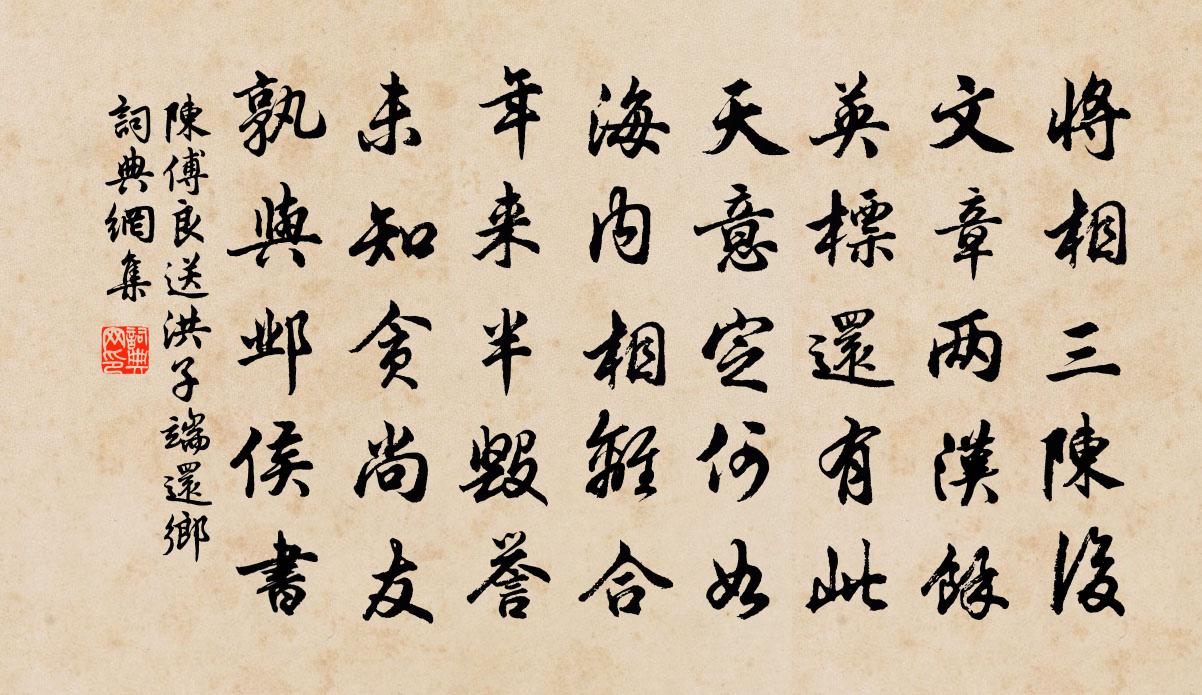 將相三陳後
文章兩漢餘
英標還有此
天意定何如
海内相離合
年来半毀譽
未知貪尚友
孰與鄴侯書
陳傅良送洪子端還鄉
詞典網集
詞典
网印